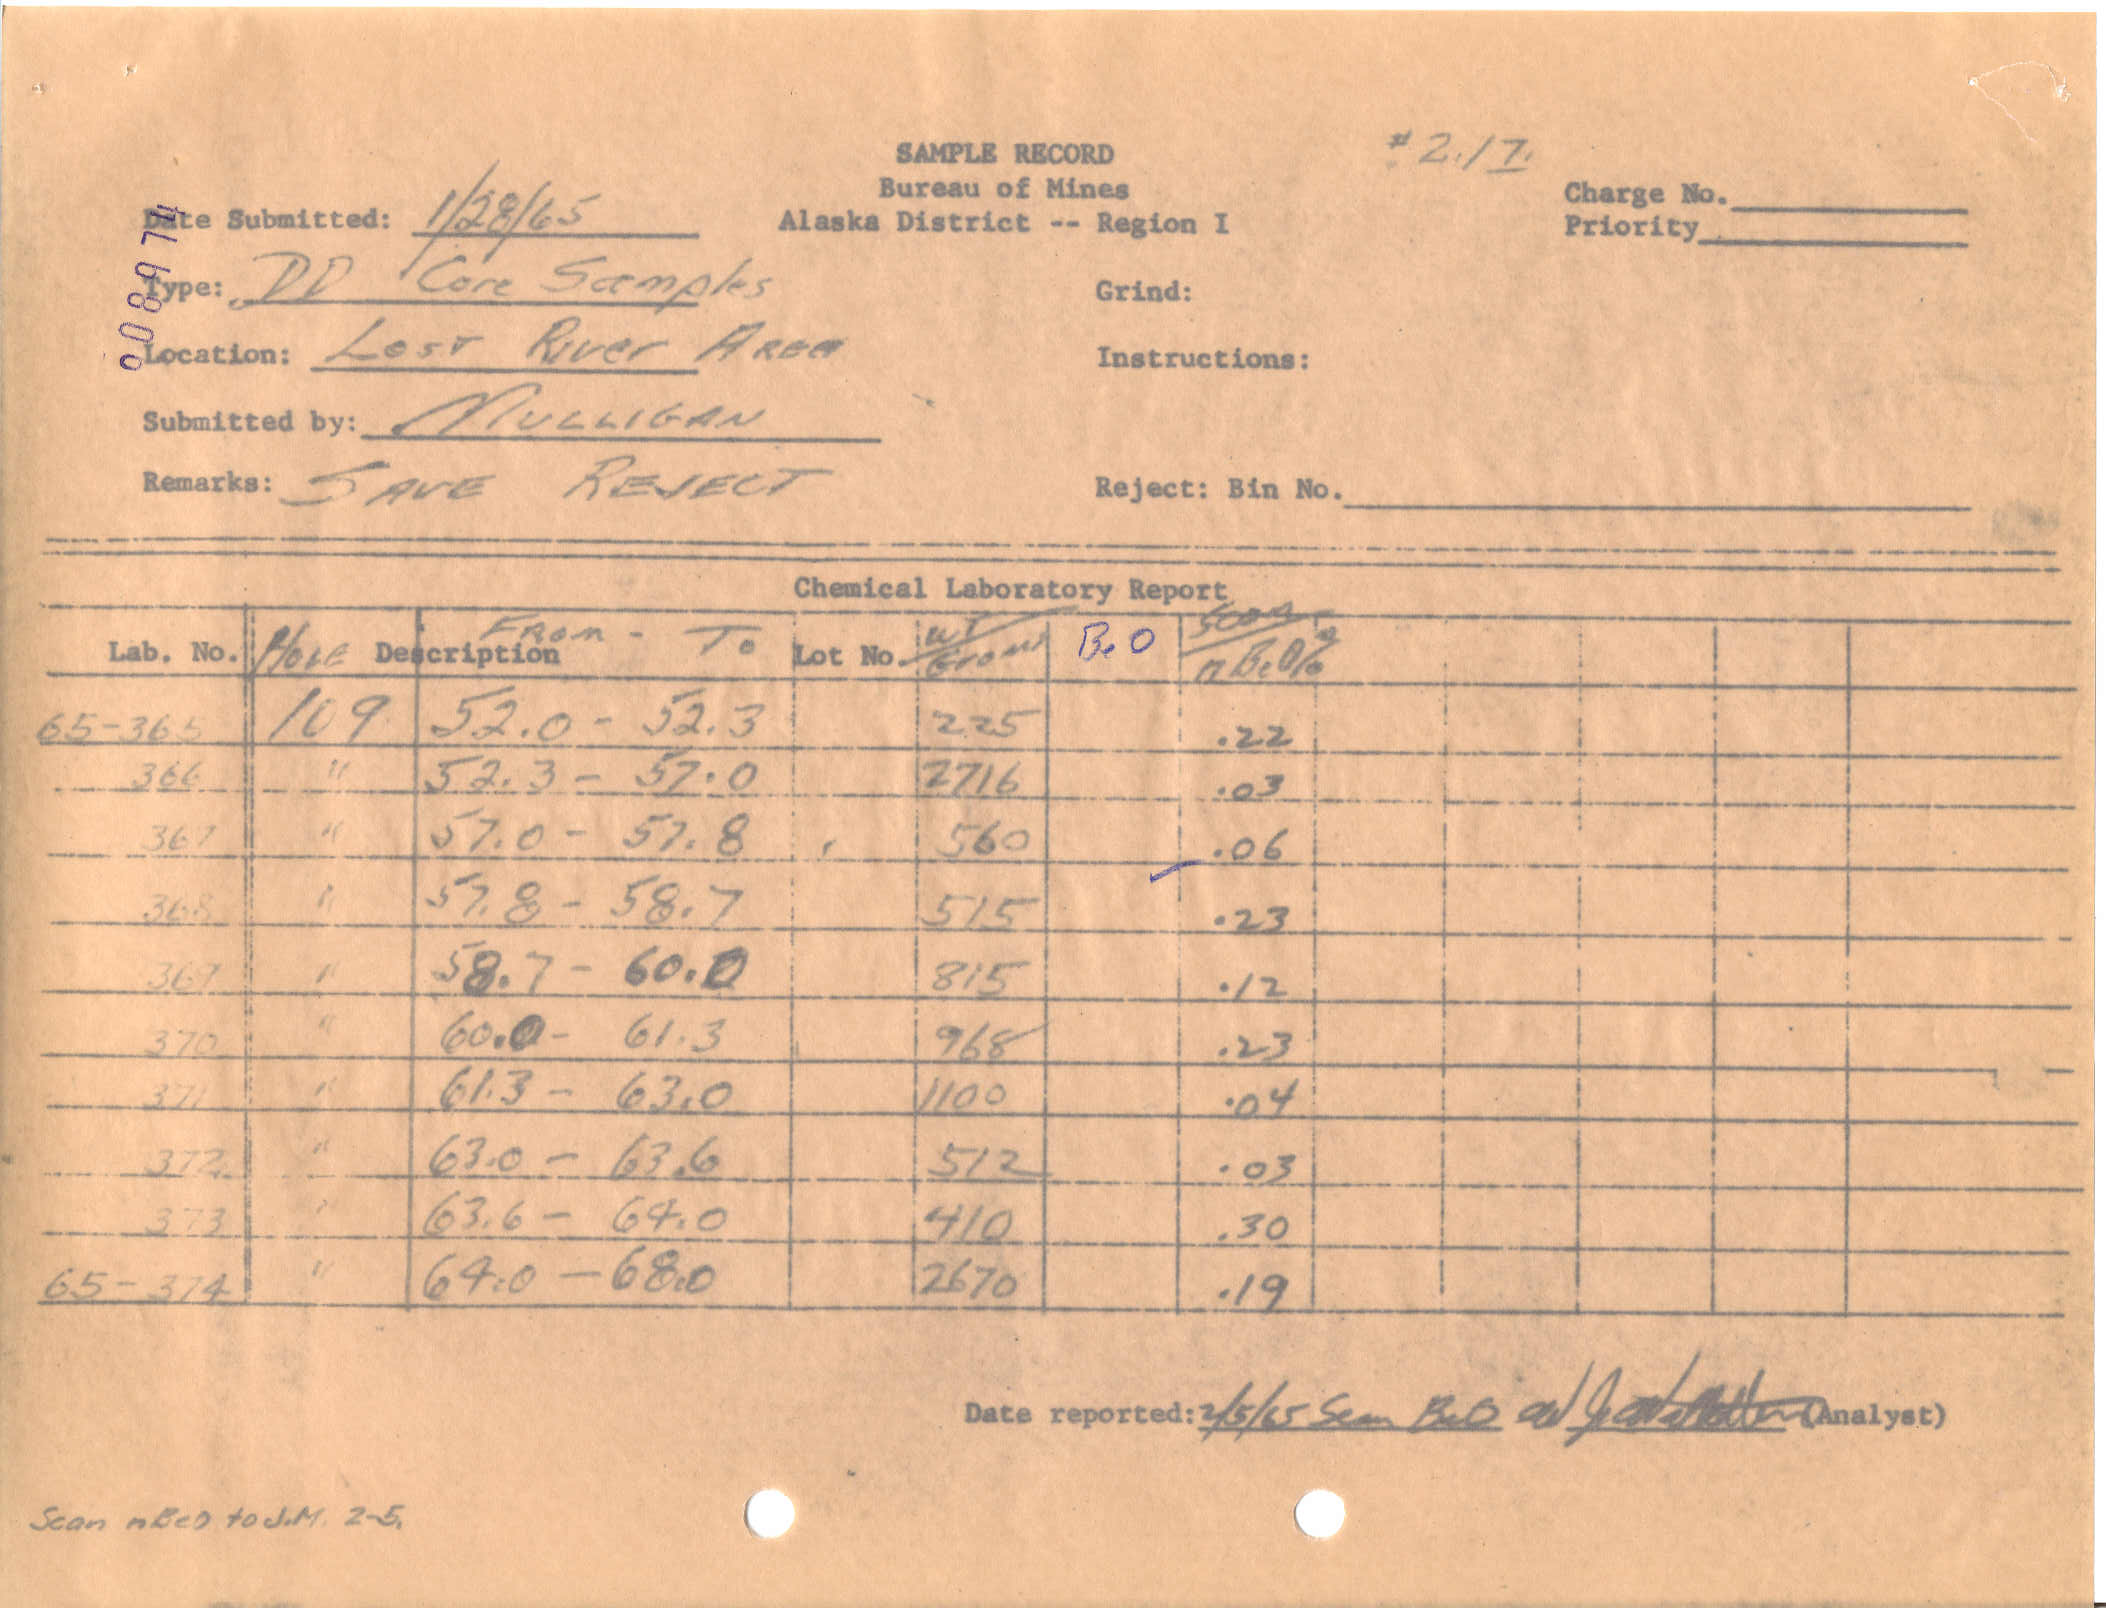 SAMPLE RECORD
# 2.17.
Bureau of Mines
Charge No.
Date Submitted: 1/28/65
Alaska District -- Region I
Priority
008974
Type: DD Core Samples
Grind:
Location: Lost River Area
Instructions:
Submitted by: MULLIGAN
Remarks: SAVE REJECT
Reject: Bin No.
Chemical Laboratory Report
Lab. No. HOLE Description FROM - To Lot No. WT Grams BeO Scan nBeO%
65-365 109 52.0 - 52.3 225 .22
366 " 52.3 - 57.0 2716 .03
367 " 57.0 - 57.8 560 .06
368 " 57.8 - 58.7 515 .23
369 " 58.7 - 60.0 815 .12
370 " 60.0 - 61.3 968 .23
371 " 61.3 - 63.0 1100 .04
372 " 63.0 - 63.6 512 .03
373 " 63.6 - 64.0 410 .30
65-374 " 64.0 - 68.0 2670 .19
Date reported: 2/5/65 Scan BeO (Analyst)
Scan nBeO to J.M. 2-5.